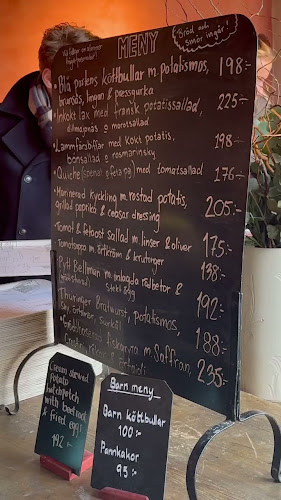 MENY
Bröd och
smör ingår!
Vi frågar om
• Blå portens köttbullar m. potatismos, 198:-
brunsås, lingon & pressgurka
• Inkokt lax med fransk potatissallad, 225:-
dillmajonäs & morotsallad
• Lammfärsbiffar med kokt potatis, 198:-
bönsallad & rosmarinsky
• Quiche (spenat & fetaost) med tomatsallad 176:-
• Marinerad kyckling m. rostad potatis, 205:-
grillad paprika & ceasar dressing
• Tomat & fetaost sallad m. linser & oliver 175:-
• Tomatsoppa m. örtkräm & krutonger 138:-
Pytt Bellman m. inlagda rödbetor & 192:-
stekt ägg
Thüringer Bratwurst, potatismos, 188:-
surkål
fiskgryta m. Saffran, 235:-
Cream stewed
potato
with beetroot
& fried egg!
192:-
Barn meny
Barn köttbullar
100:-
Pannkakor
95:-